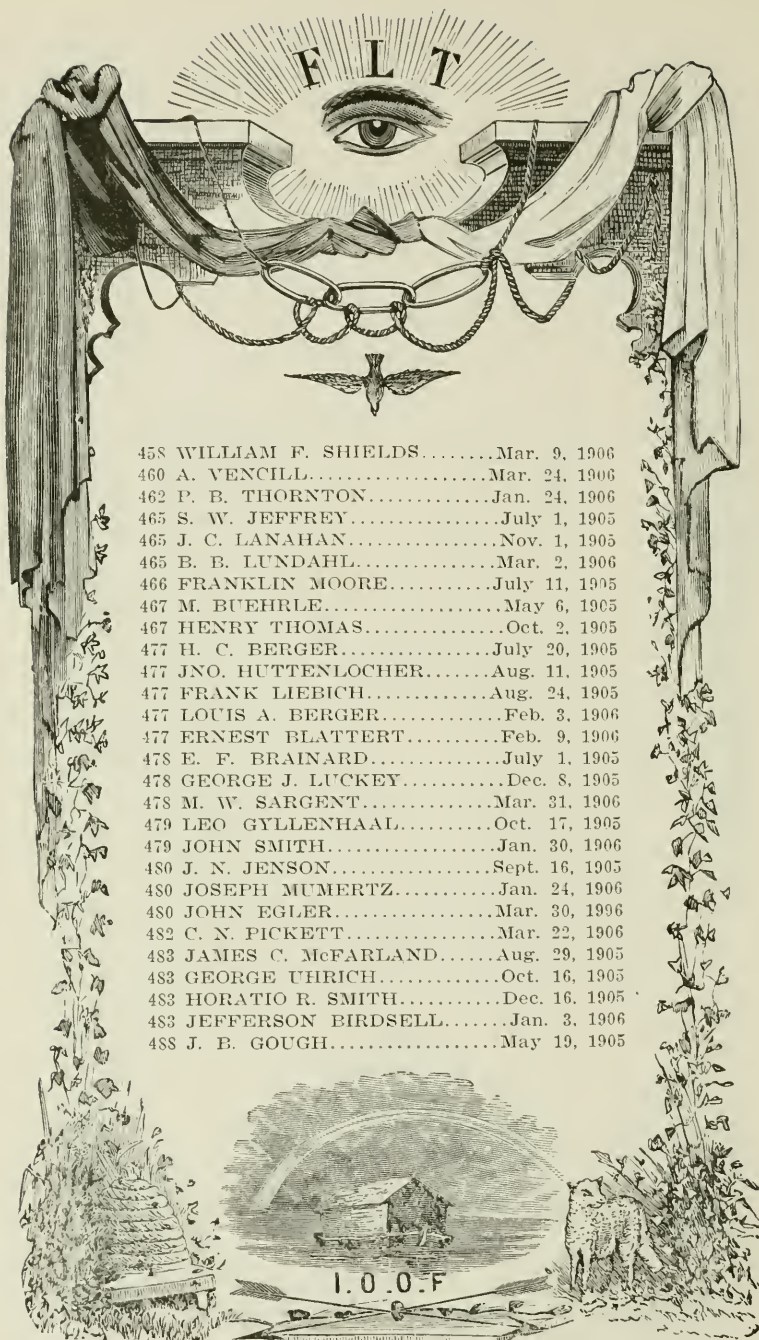 F L T
458 WILLIAM F. SHIELDS........Mar. 9, 1906
460 A. VENCILL.................Mar. 24, 1906
462 P. B. THORNTON............Jan. 24, 1906
465 S. W. JEFFREY...............July 1, 1905
465 J. C. LANAHAN...............Nov. 1, 1905
465 B. B. LUNDAHL..............Mar. 2, 1906
466 FRANKLIN MOORE..........July 11, 1905
467 M. BUEHRLE..................May 6, 1905
467 HENRY THOMAS..............Oct. 2, 1905
477 H. C. BERGER...............July 20, 1905
477 JNO. HUTTENLOCHER.......Aug. 11, 1905
477 FRANK LIEBICH............Aug. 24, 1905
477 LOUIS A. BERGER............Feb. 3, 1906
477 ERNEST BLATTERT..........Feb. 9, 1906
478 E. F. BRAINARD.............July 1, 1905
478 GEORGE J. LUCKEY..........Dec. 8, 1905
478 M. W. SARGENT.............Mar. 31, 1906
479 LEO GYLLENHAAL.........Oct. 17, 1905
479 JOHN SMITH.................Jan. 30, 1906
480 J. N. JENSON...............Sept. 16, 1905
480 JOSEPH MUMERTZ..........Jan. 24, 1906
480 JOHN EGLER................Mar. 30, 1996
482 C. N. PICKETT..............Mar. 22, 1906
483 JAMES C. McFARLAND......Aug. 29, 1905
483 GEORGE UHRICH............Oct. 16, 1905
483 HORATIO R. SMITH..........Dec. 16, 1905
483 JEFFERSON BIRDSELL.......Jan. 3, 1906
488 J. B. GOUGH.................May 19, 1905
I.O.O.F